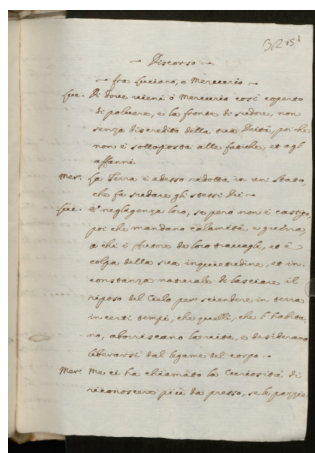 Discorso
fra Luciano, e Mercurio
Luc. Di dove vieni ò Mercurio così coperto
di polvere, e la fronte di sudore, non
senza discredito della tua Deità, poiche
non è sottoposta alle fatiche, et agl
affanni
Mer. La Terra è adesso ridotta in un stato,
che fa sudare gli stessi Dei
Luc. È negligenza loro, se però non è castigo,
poi che mandano calamità, e
à chi è de loro travagli, et è
colpa della sua inquietudine, et in
constanza naturale di lasciare il
riposo del Cielo per scendere in terra
in certi tempi, che quelli, che l'habita
no, aborriscano la vita, e desiderano
liberarsi dal legame del corpo
Mer. Me ci ha chiamato la Curiosità di
riconoscere più da presso, se le pazzie